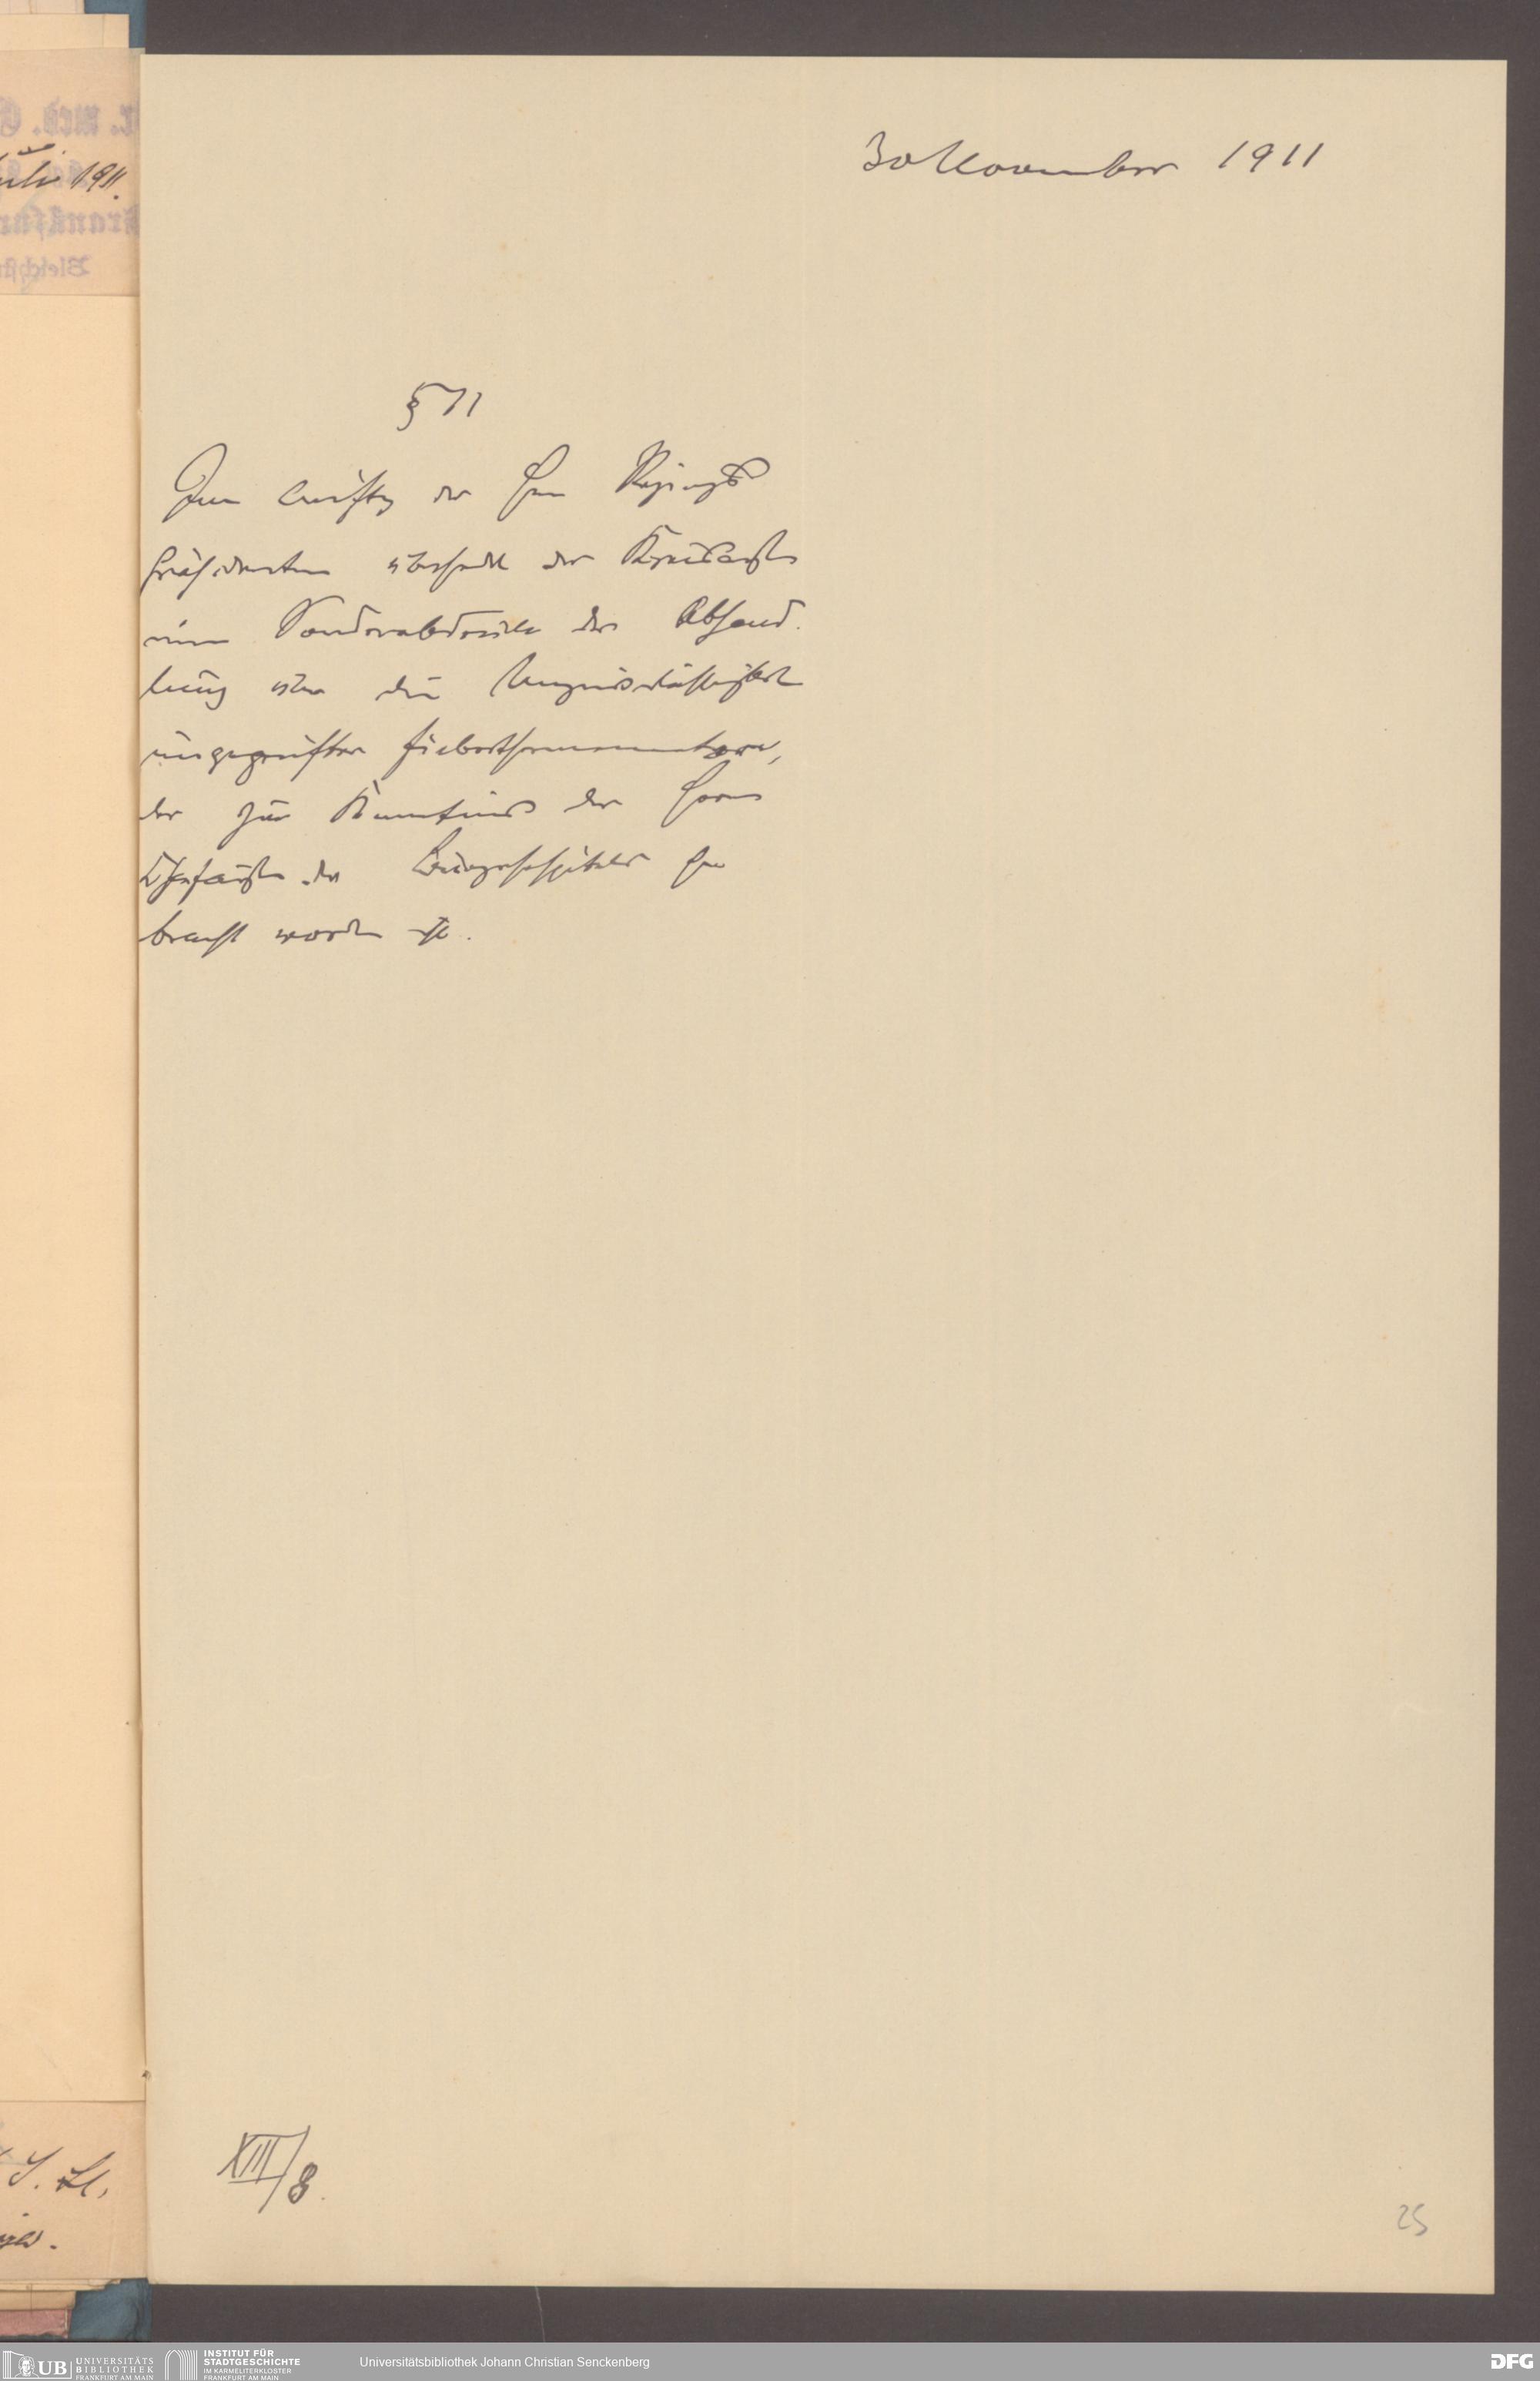 Juli 1911.
30 November 1911
§ 11
Im Auftrag des Herrn Regierungs
präsidenten übersendet der Kreisarzt
einen Sonderabdruck der Abhand-
lung über die Unzuverlässigkeit
ungeprüfter Fieberthermometer,
der zur Kenntnis der Herren
Chefärzte des Bürgerhospitals ge
bracht worden ist.
XIII/8.
25
UB UNIVERSITÄTS BIBLIOTHEK FRANKFURT AM MAIN
INSTITUT FÜR STADTGESCHICHTE IM KARMELITERKLOSTER FRANKFURT AM MAIN
Universitätsbibliothek Johann Christian Senckenberg
DFG